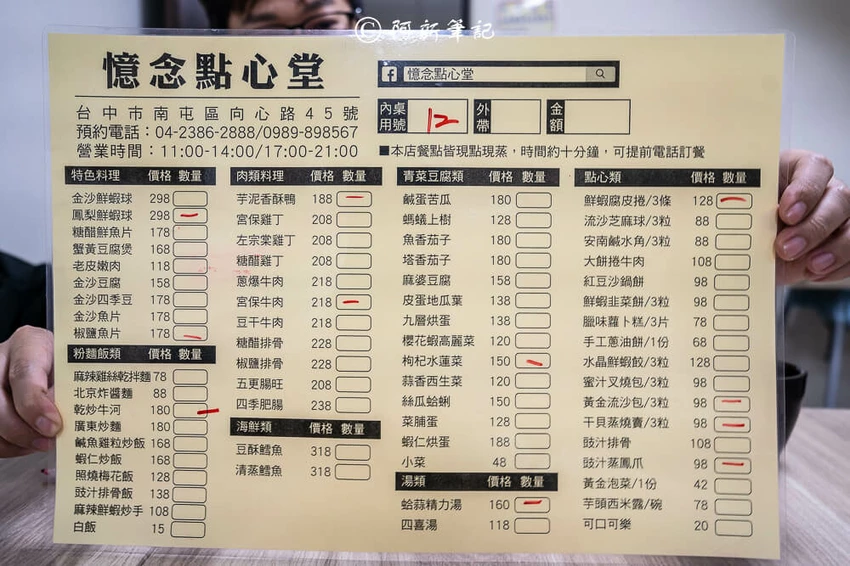 © 阿新筆記
憶念點心堂
台中市南屯區向心路45號
預約電話：04-2386-2888/0989-898567
營業時間：11:00-14:00/17:00-21:00
f 憶念點心堂
內用桌號 12 外帶 金額
■本店餐點皆現點現蒸，時間約十分鐘，可提前電話訂餐
特色料理 價格 數量
金沙鮮蝦球 298
鳳梨鮮蝦球 298
糖醋鮮魚片 178
蟹黃豆腐煲 168
老皮嫩肉 118
金沙豆腐 158
金沙四季豆 178
金沙魚片 178
椒鹽魚片 178
粉麵飯類 價格 數量
麻辣雞絲乾拌麵 78
北京炸醬麵 88
乾炒牛河 180
廣東炒麵 180
鹹魚雞粒炒飯 168
蝦仁炒飯 168
照燒梅花飯 128
豉汁排骨飯 138
麻辣鮮蝦炒手 108
白飯 15
肉類料理 價格 數量
芋泥香酥鴨 188
宮保雞丁 208
左宗棠雞丁 208
糖醋雞丁 208
蔥爆牛肉 218
宮保牛肉 218
豆干牛肉 218
糖醋排骨 228
椒鹽排骨 228
五更腸旺 208
四季肥腸 238
海鮮類 價格 數量
豆酥鱈魚 318
清蒸鱈魚 318
青菜豆腐類 價格 數量
鹹蛋苦瓜 180
螞蟻上樹 128
魚香茄子 180
塔香茄子 180
麻婆豆腐 158
皮蛋地瓜葉 138
九層烘蛋 138
櫻花蝦高麗菜 120
枸杞水蓮菜 150
蒜香西生菜 120
絲瓜蛤蜊 150
菜脯蛋 128
蝦仁烘蛋 188
小菜 48
湯類 價格 數量
蛤蒜精力湯 160
四喜湯 118
點心類 價格 數量
鮮蝦腐皮捲/3條 128
流沙芝麻球/3粒 88
安南鹹水角/3粒 88
大餅捲牛肉 108
紅豆沙鍋餅 98
鮮蝦韭菜餅/3粒 98
臘味蘿卜糕/3片 78
手工蔥油餅/1份 68
水晶鮮蝦餃/3粒 128
蜜汁叉燒包/3粒 98
黃金流沙包/3粒 98
干貝蒸燒賣/3粒 98
豉汁排骨 108
豉汁蒸鳳爪 98
黃金泡菜/1份 42
芋頭西米露/碗 78
可口可樂 20